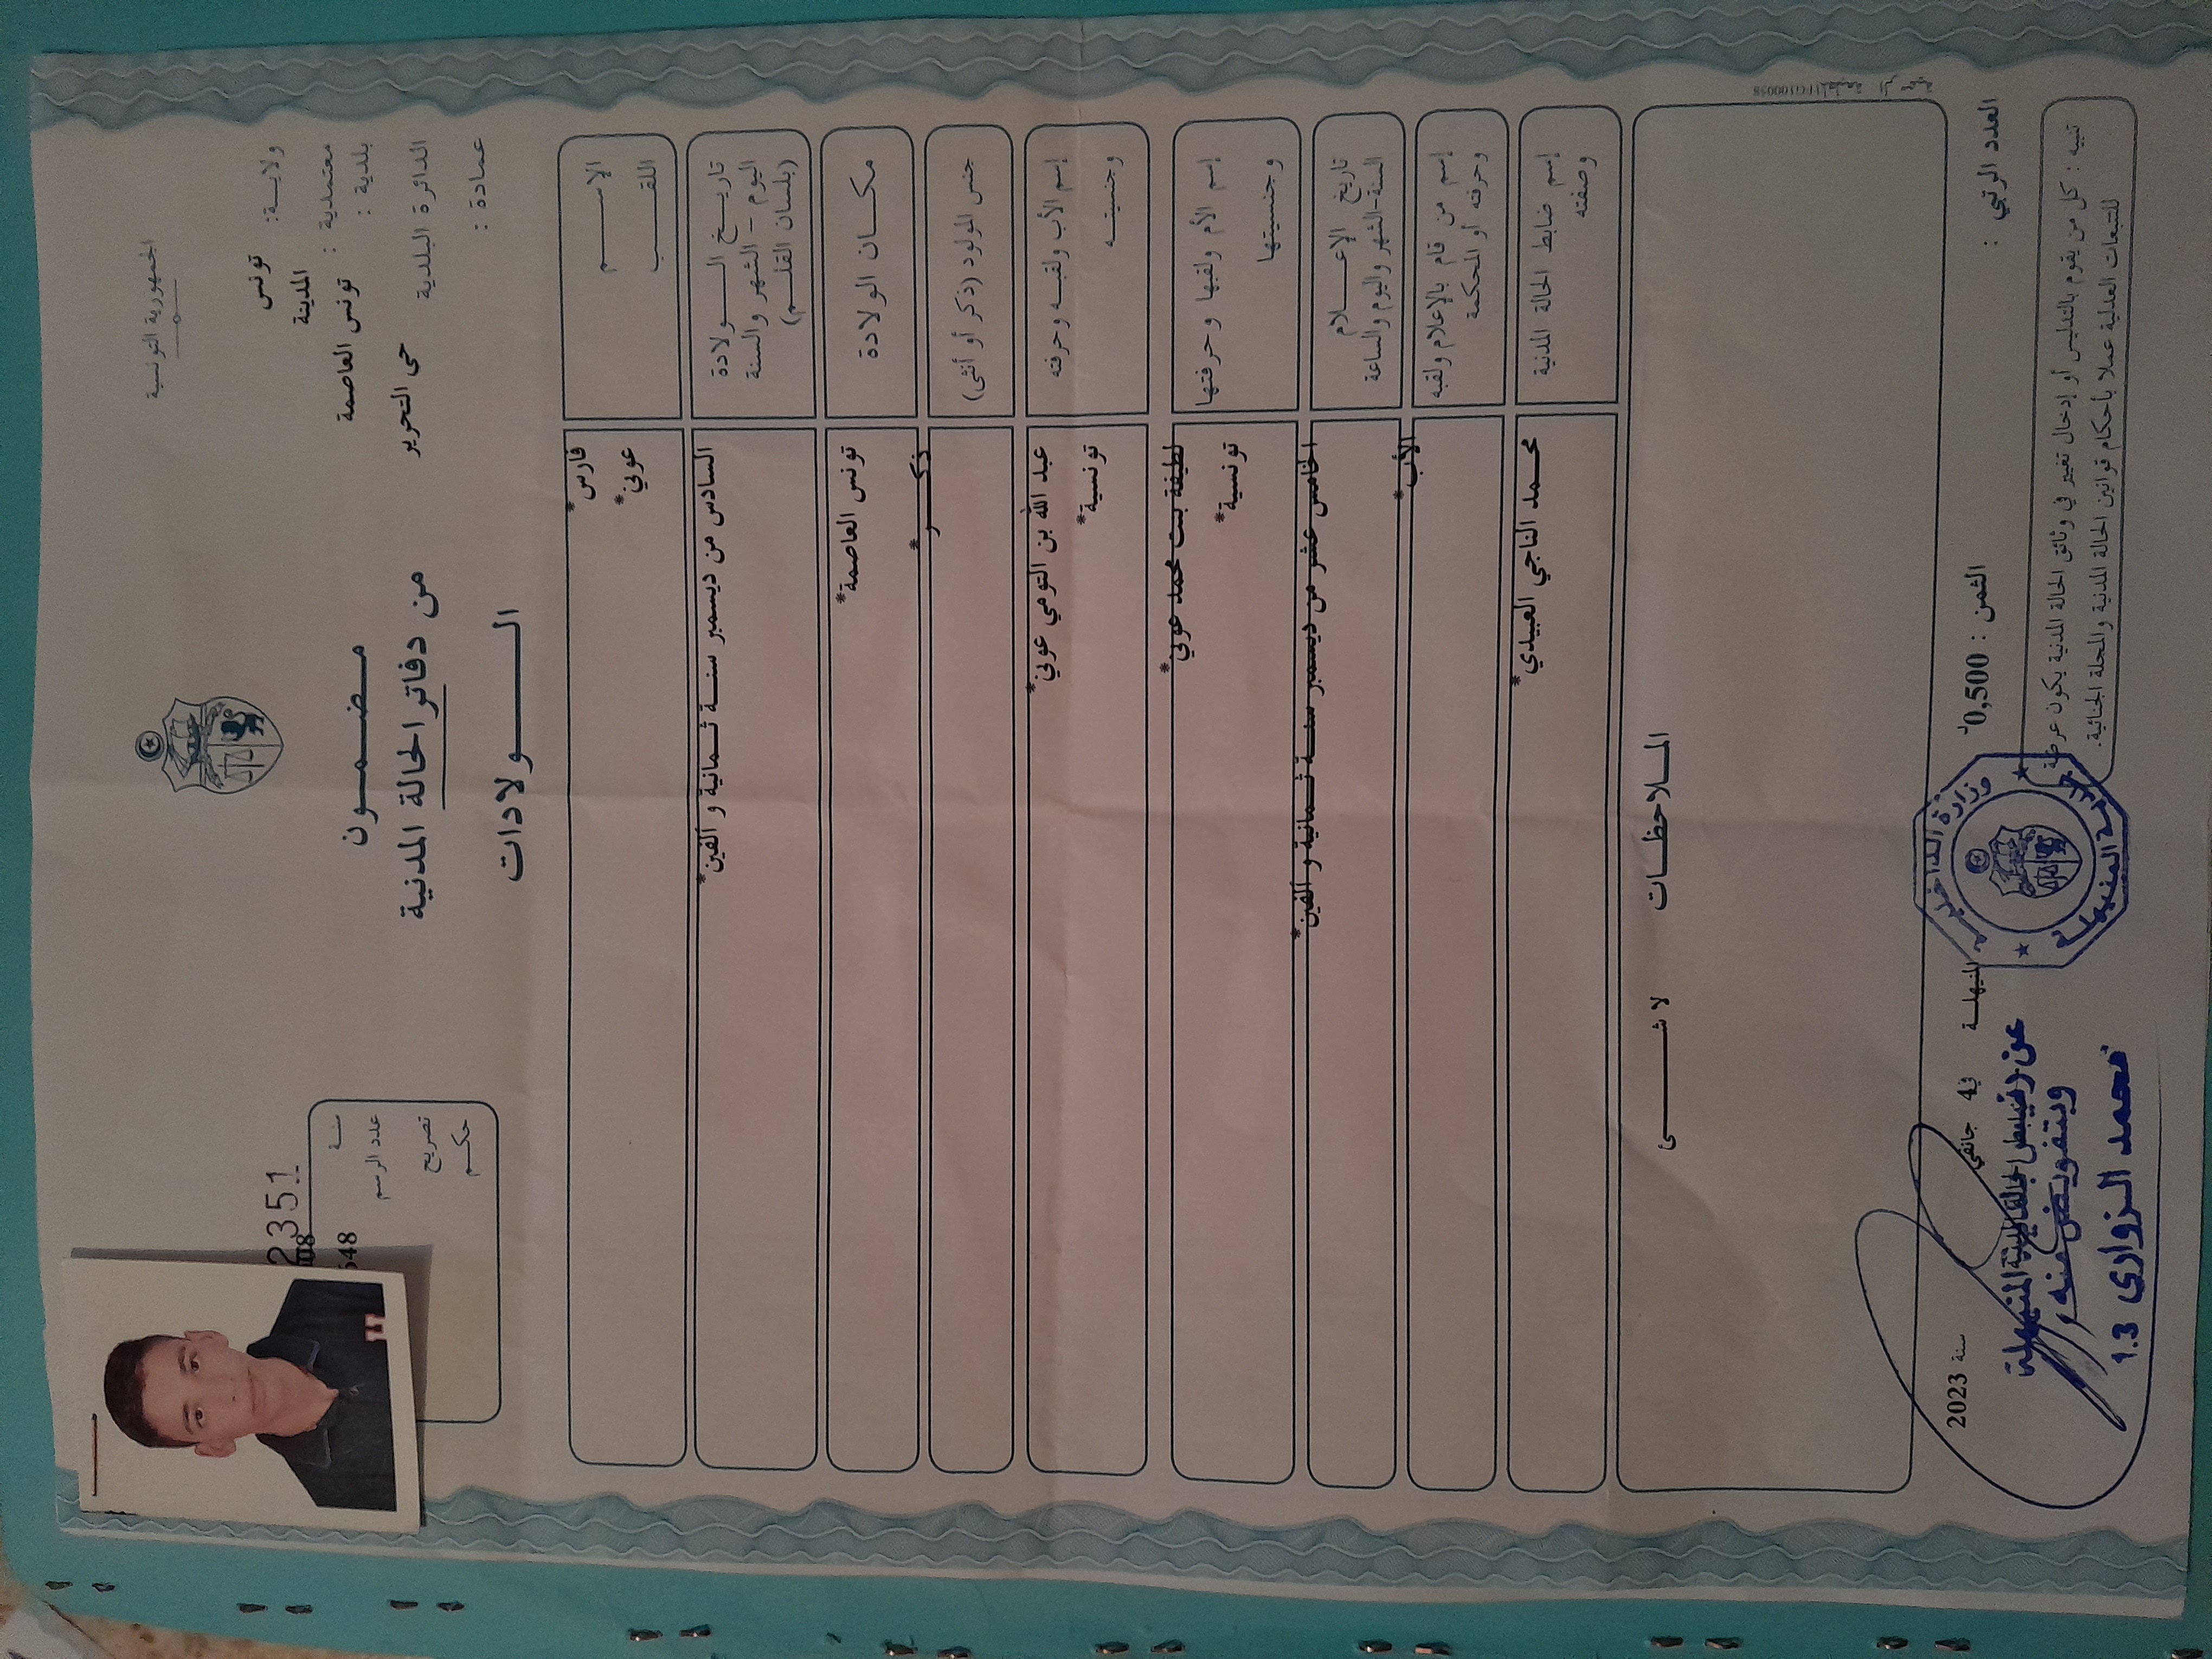 الجمهورية التونسية
ولايـــة: تونس
المدينة
معتمدية :
بلدية : تونس العاصمة
الدائرة البلدية حي التحرير
عمادة :
2351
سنـة
عدد الرسم
تصريح
حكـم
مـضـمـون
من دفاتر الحالة المدنية
الـــولادات
الإســـم فارس*
اللقـــب عوني*
تاريـخ الـــولادة السادس من ديسمبر سنـة ثـمانية و الفين*
اليوم - الشهر والسنة
(بلسان القلـم)
مكـان الولادة تونس العاصمة*
جنس المولود (ذكر أو أنثى) ذكـر*
إسم الأب ولقبـه وحرفته عبد الله بن التومي عوني*
وجنسيتـه تونسية*
إسم الأم ولقبها وحرفتها لطيفة بنت محمد عوني*
وجنسيتها تونسية*
تاريخ الإعـــلام الخامس عشر من ديسمبر سنـة ثـمانية و الفين*
السنة-الشهر واليوم والساعة
إسم من قام بالإعلام ولقبه الأب*
وحرفته أو المحكمة
إسم ضابط الحالة المدنية محـمد الناجي العبيدي*
وصفته
المـلاحظـات
لا شـــئ
العدد الرتبي :
الثمن : 0,500د
المنيهلـة في 4 جانفي سنة 2023
تنبيه : كل من يقوم بالتدليس أو إدخال تغيير في وثائق الحالة المدنية يكون عرضة
للتتبعات العدلية عملا بأحكام قوانين الحالة المدنية والمجلة الجنائية.
وزارة الداخلية
عن ضابط الحالة المدنية المنيهلة
وبتفويض منه
محمد الزواري 1.3